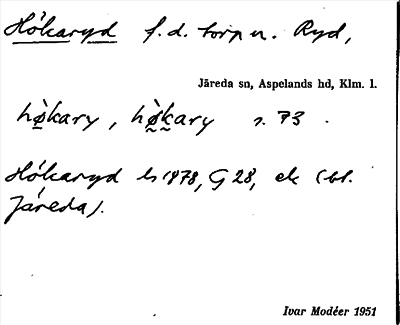 Hökaryd f.d. torp u. Ryd,
Järeda sn, Aspelands hd, Klm. l.
hø̀kary, hø̀kary s. 73.
Hökaryd hs 1878, G 28, ek (bl.
Järeda).
Ivar Modéer 1951